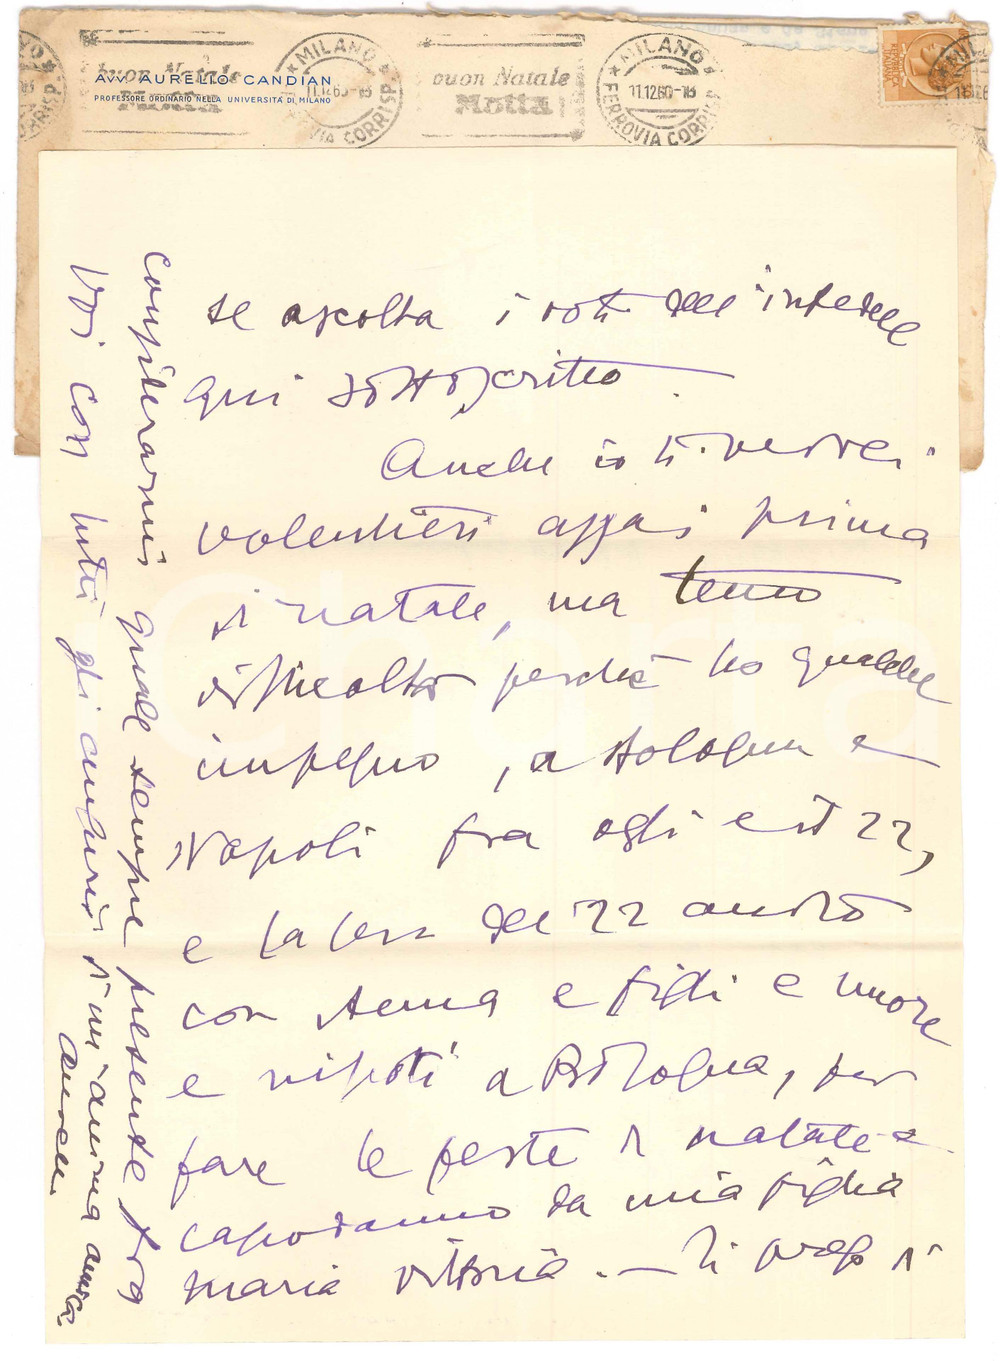 MILANO
buon Natale
Motta
AVV. AURELIO CANDIAN
PROFESSORE ORDINARIO NELLA UNIVERSITÀ DI MILANO
11.12.60-18
FERROVIA CORRISP.
buon Natale
Motta
MILANO
11.12.60-18
FERROVIA CORRISP.
se ascolta i voti dell'infedele
qui sottoscritto.
Anche io ti vedrei
volentieri assai prima
di natale, ma temo
difficoltà perché ho qualche
impegno, a Bologna e
Napoli fra oggi e il 22,
e la sera del 22 andrò
con Anna e figli e nuore
e nipoti a Bologna, per
fare le feste di natale e
capodanno da mia figlia
Maria Vittoria. — Ti prego di
considerarmi quale sempre presente fra
voi con tutti gli auguri di mi anima amica.
Aurelio